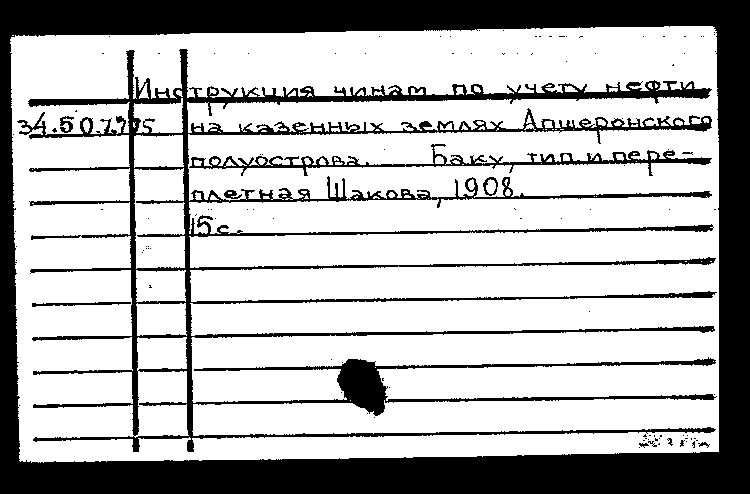 Инструкция чинам по учету нефти
34.50.7.275 на казенных землях Апшеронского
полуострова. Баку, тип. и пере-
плетная Шакова, 1908.
15 с.